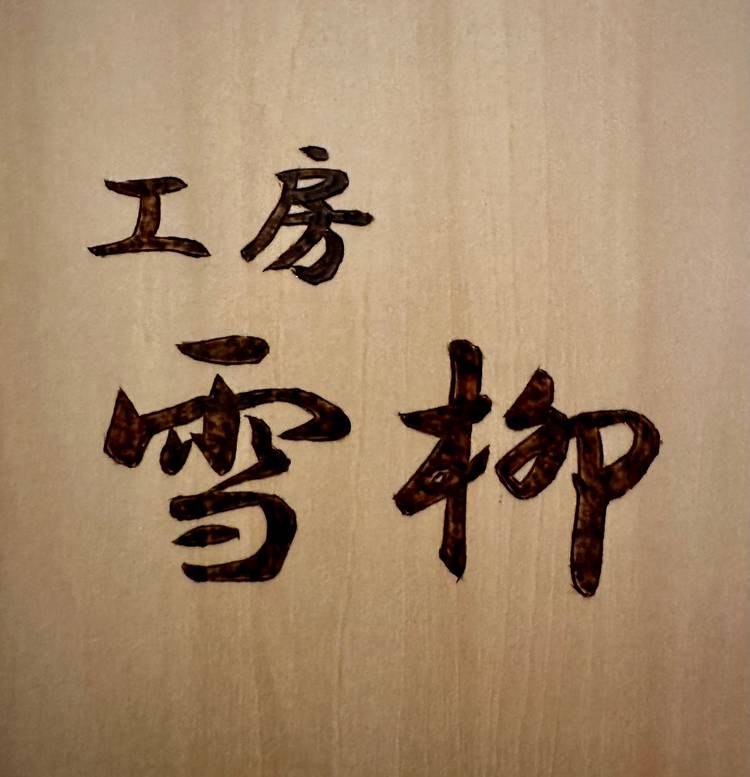 工房
雪柳